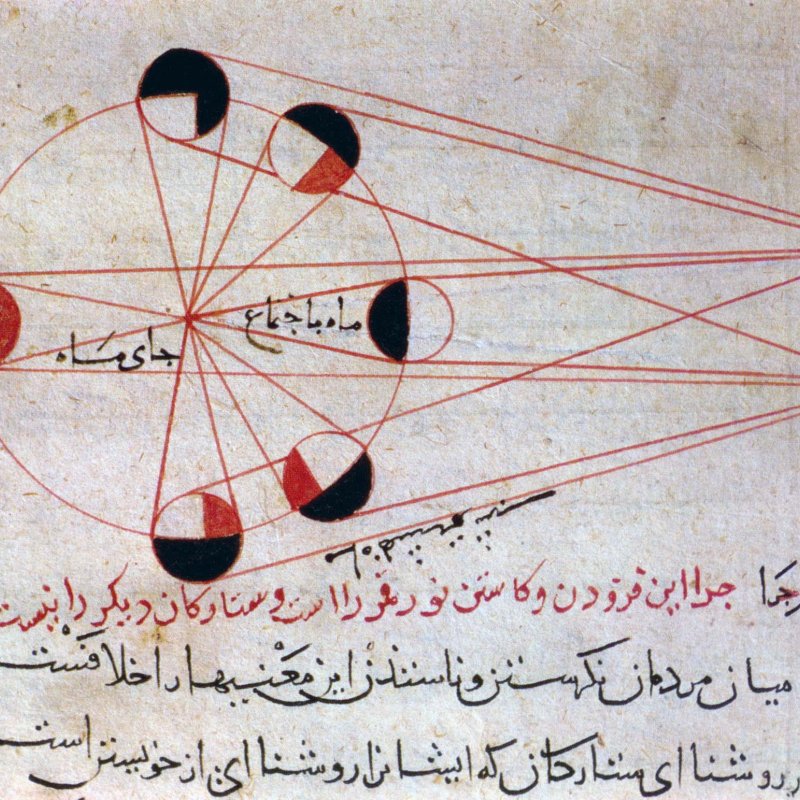 ماه باجتماع
جای ماه
چرا این فزودن و کاستن نور قمر راست و ستارکان دیکر را نیست
میان مردمان نکرستن و ناسنندن این معنیها را خلافست
روشنا ای ستارکان که ایشانرا روشنا ای از خویشتن است